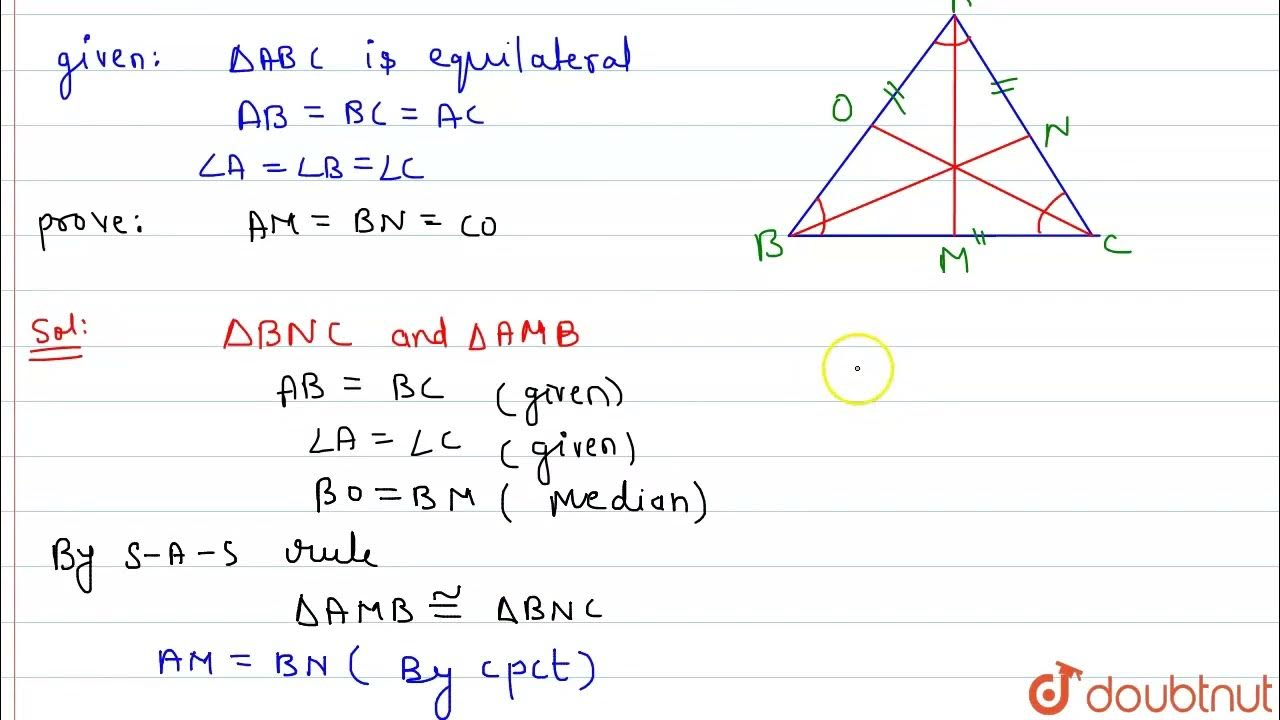 given: ΔABC is equilateral
AB = BC = AC
∠A = ∠B = ∠C
prove: AM = BN = CO
O
N
B
M
C
Sol:
ΔBNC and ΔAMB
AB = BC (given)
∠A = ∠C (given)
BO = BM (Median)
By S-A-S rule
ΔAMB ≅ ΔBNC
AM = BN (By cpct)
doubtnut